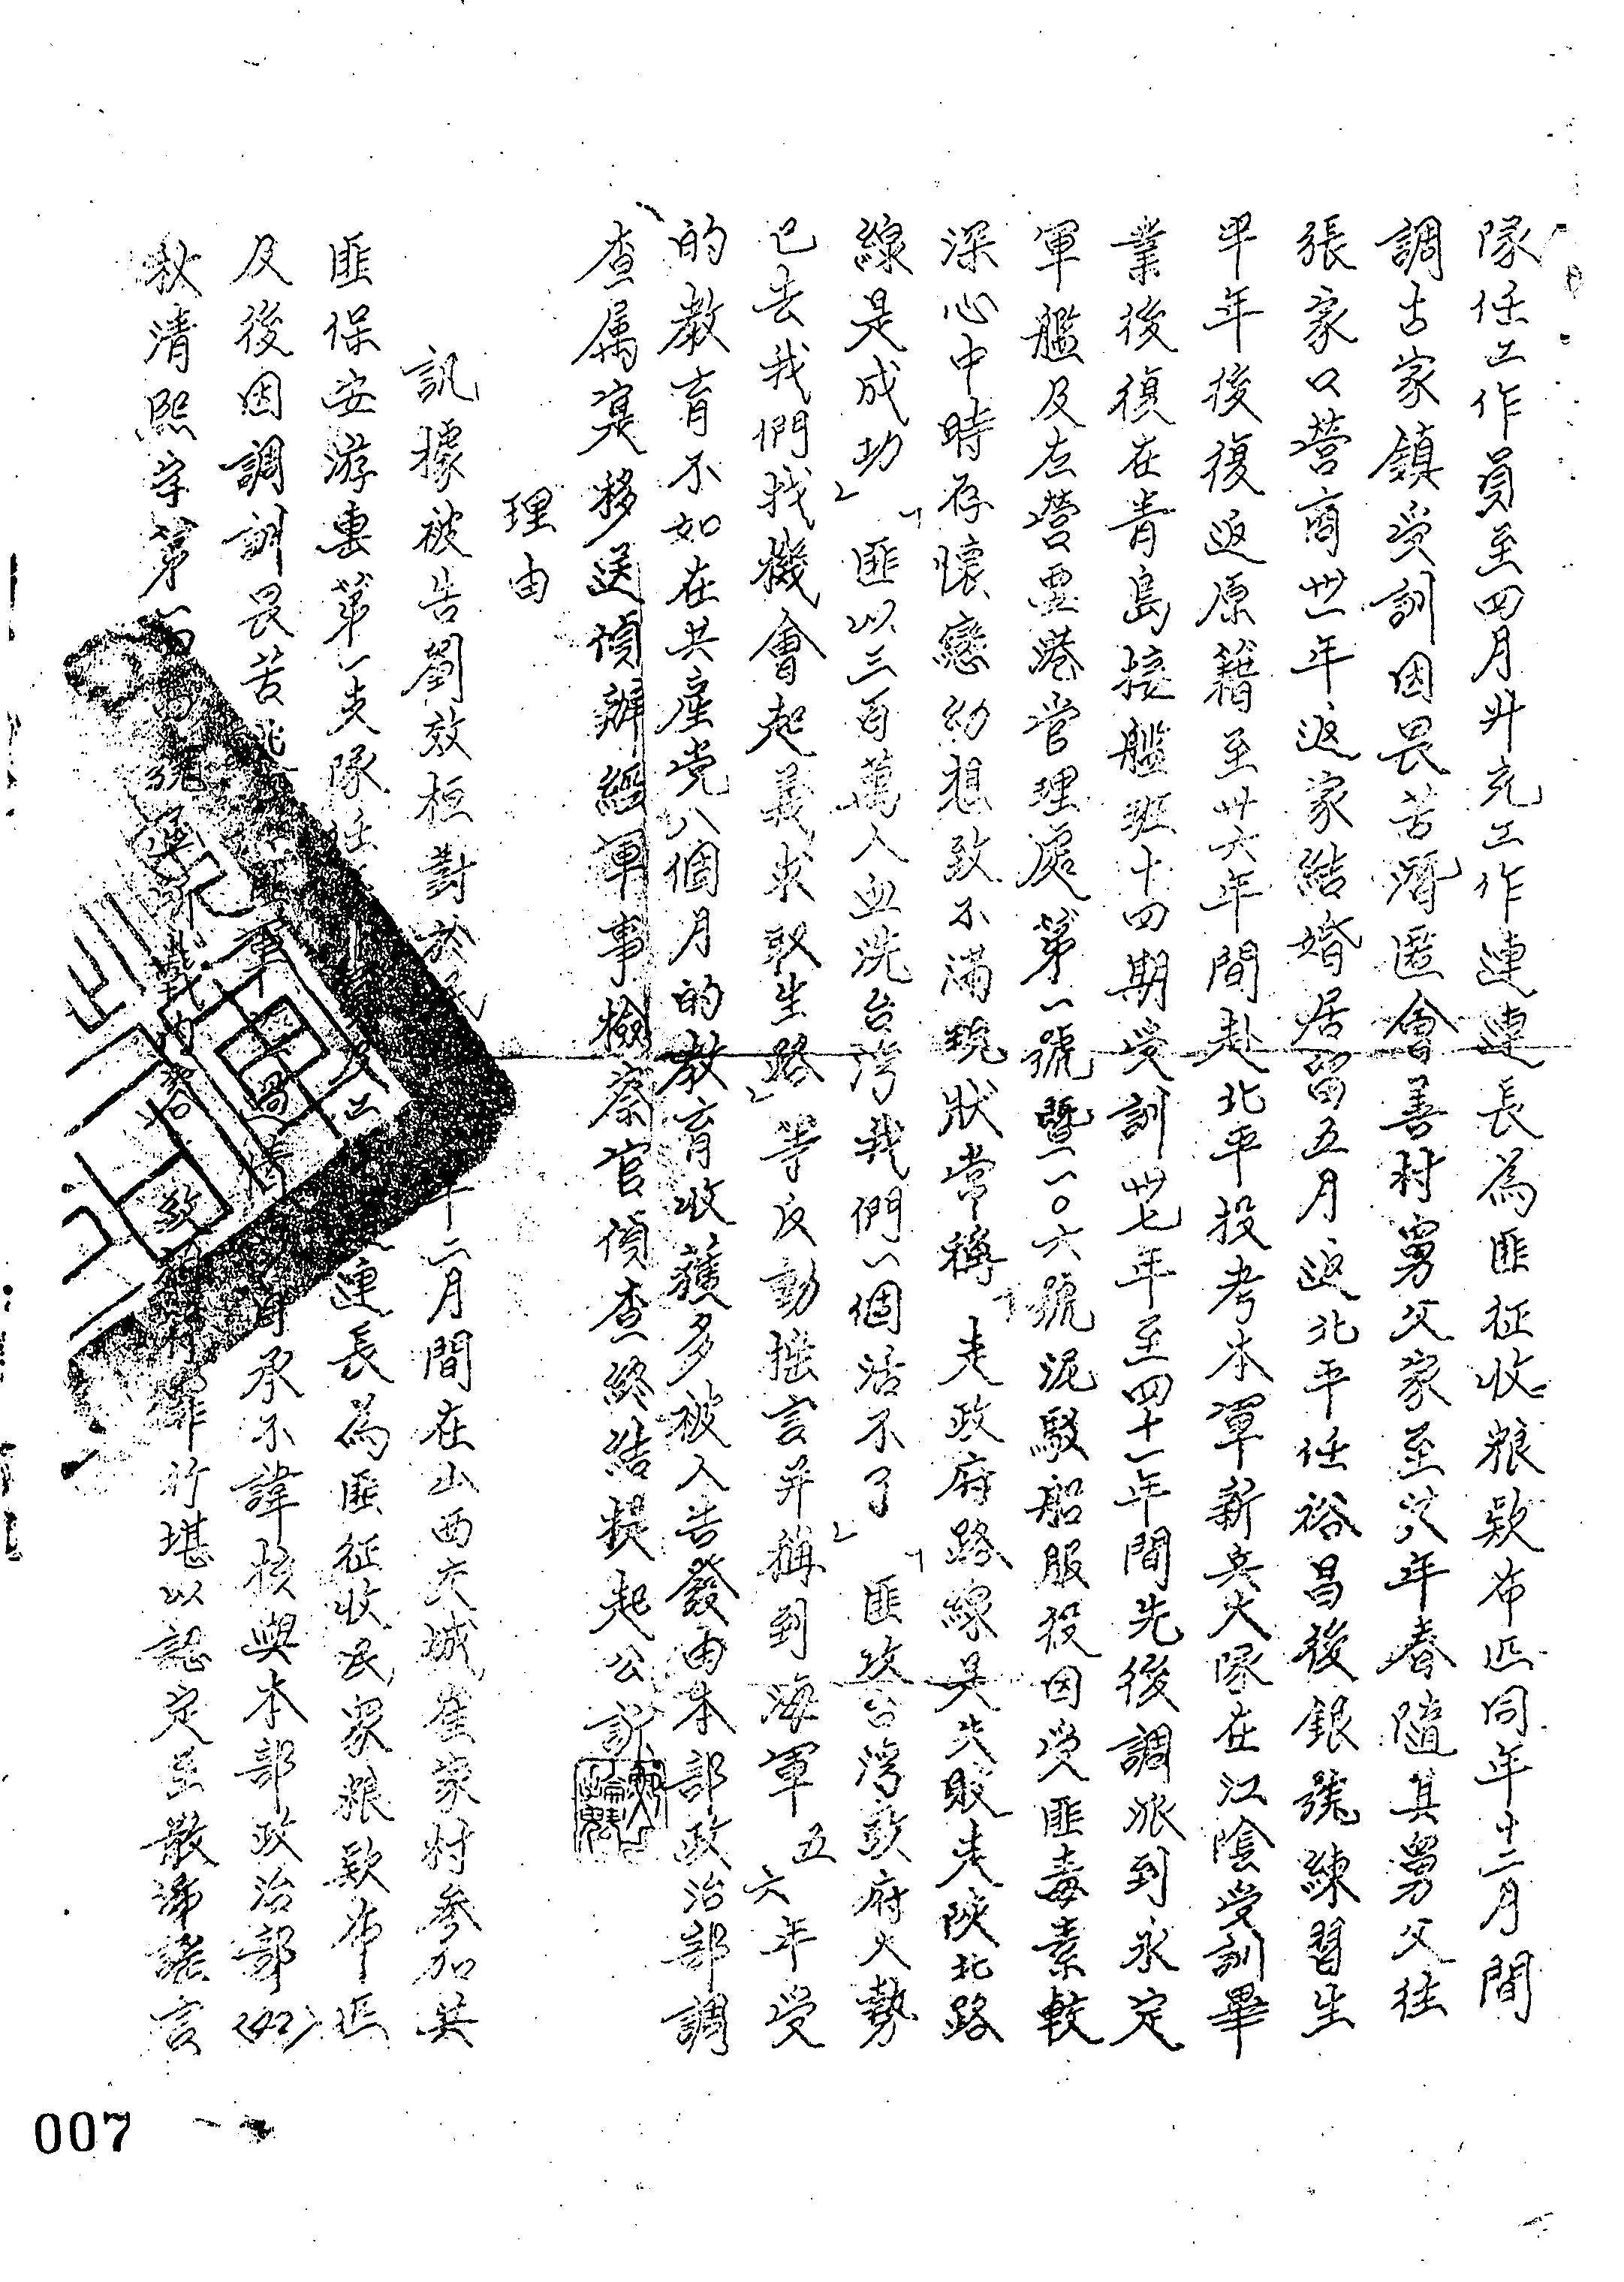 隊任工作員至四月升充工作連連長為匪征收粮欵布匹同年十二月間
調古家鎮受訓因畏苦潛匿會善村舅父家至廿八年春隨其舅父往
張家口營商卅一年返家結婚居留五月返北平任裕昌後銀號練習生
半年後復返原籍至卅六年間赴北平投考本軍新兵大隊在江陰受訓畢
業後復在青島接艦班十四期受訓卅七年至四十一年間先後調派到永定
軍艦及左營要港管理處第一號暨一〇六號泥駁船服役因受匪毒素較
深心中時存懷戀幼想致不滿現狀常稱「走政府路線是失敗走陝北路
線是成功」「匪以三百萬人血洗台灣我們一個活不了」「匪攻台灣政府大勢
已去我們找機會起義求取生路」等反動謠言并稱到海軍五六年受
的教育不如在共產党八個月的教育收獲多被人告發由本部政治部調
查属寔移送偵辦經軍事檢察官偵查終結提起公訴
理由
訊據被告劉效桓對於民 十二月間在山西交城崔家村参加共
匪保安游擊第一支隊任 連長為匪征收民眾粮欵布匹
及後因調訓畏苦逃 自承不諱核與本部政治部(42)
秋清熙字第 罪行堪以認定至散佈謠言
007